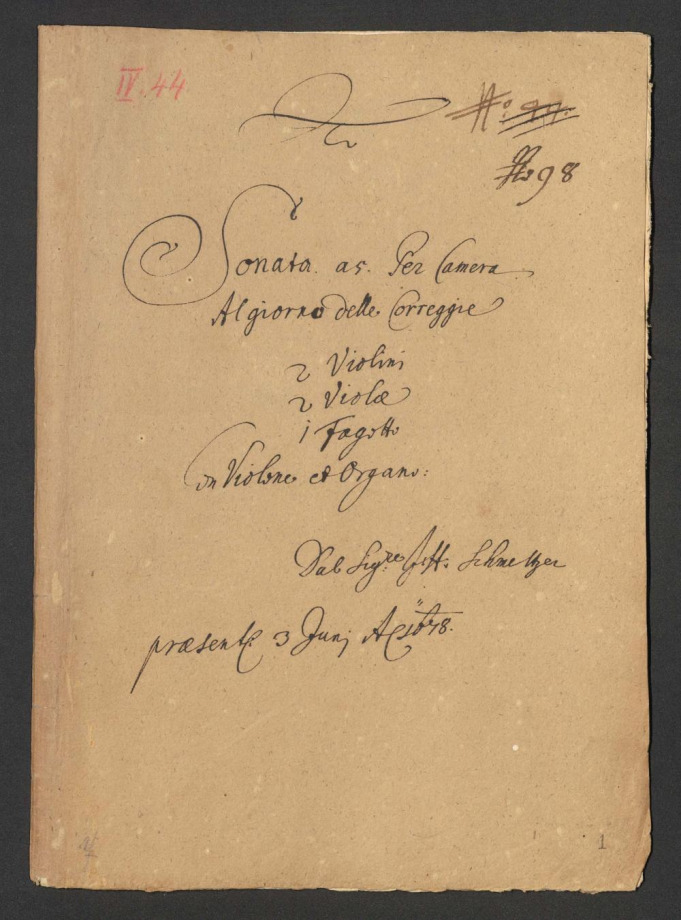 IV. 44
No 98
Sonata. a5. Per Camera
Al giorno delle Correggie
2 Violini
2 Violæ
1 Fagotto
con Violone et Organo:
Dal Sig:re Schmeltzer
præsent: 3 Junj 1678.
1